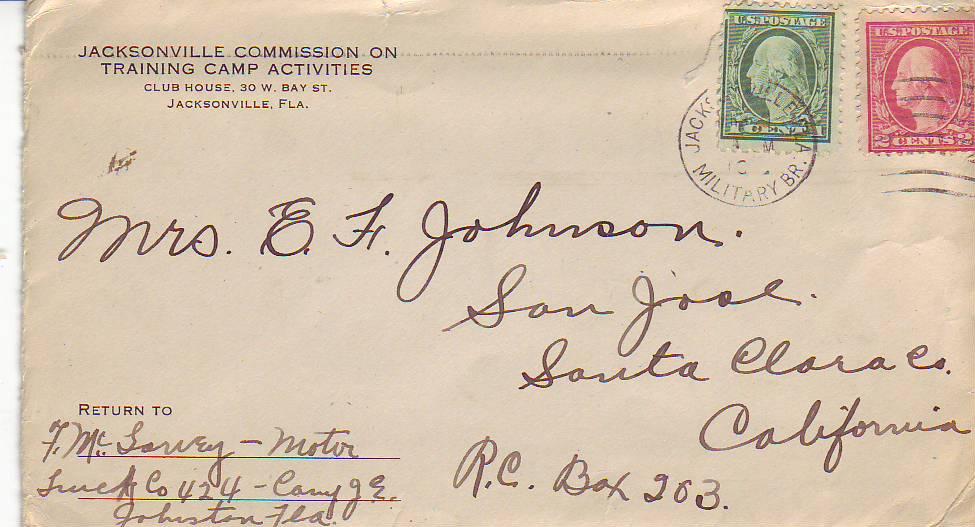 JACKSONVILLE COMMISSION ON
TRAINING CAMP ACTIVITIES
CLUB HOUSE, 30 W. BAY ST.
JACKSONVILLE, FLA.
U.S. POSTAGE
U.S. POSTAGE
2 CENTS 2
MILITARY BR.
Mrs. E. F. Johnson.
San Jose.
Santa Clara Co.
California
R.C. Box 203.
RETURN TO
F. Mc Garvey - Motor
Truck Co 424 - Camp J. E.
Johnston Fla.